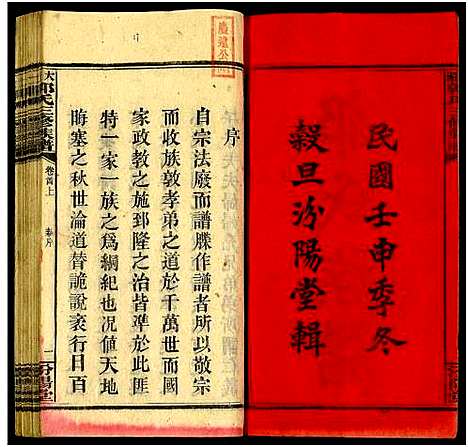 民國壬申季冬
穀旦汾陽堂輯
序
自宗法廢而譜牒作譜者所以敬宗
而收族敦孝弟之道於千萬世而國
家政教之施郅隆之治皆準於此匪
特一家一族之為綱紀也況值天地
晦塞之秋世淪道替詭說袤行目百
大郭氏三修族譜
卷首上
序
一
汾陽堂